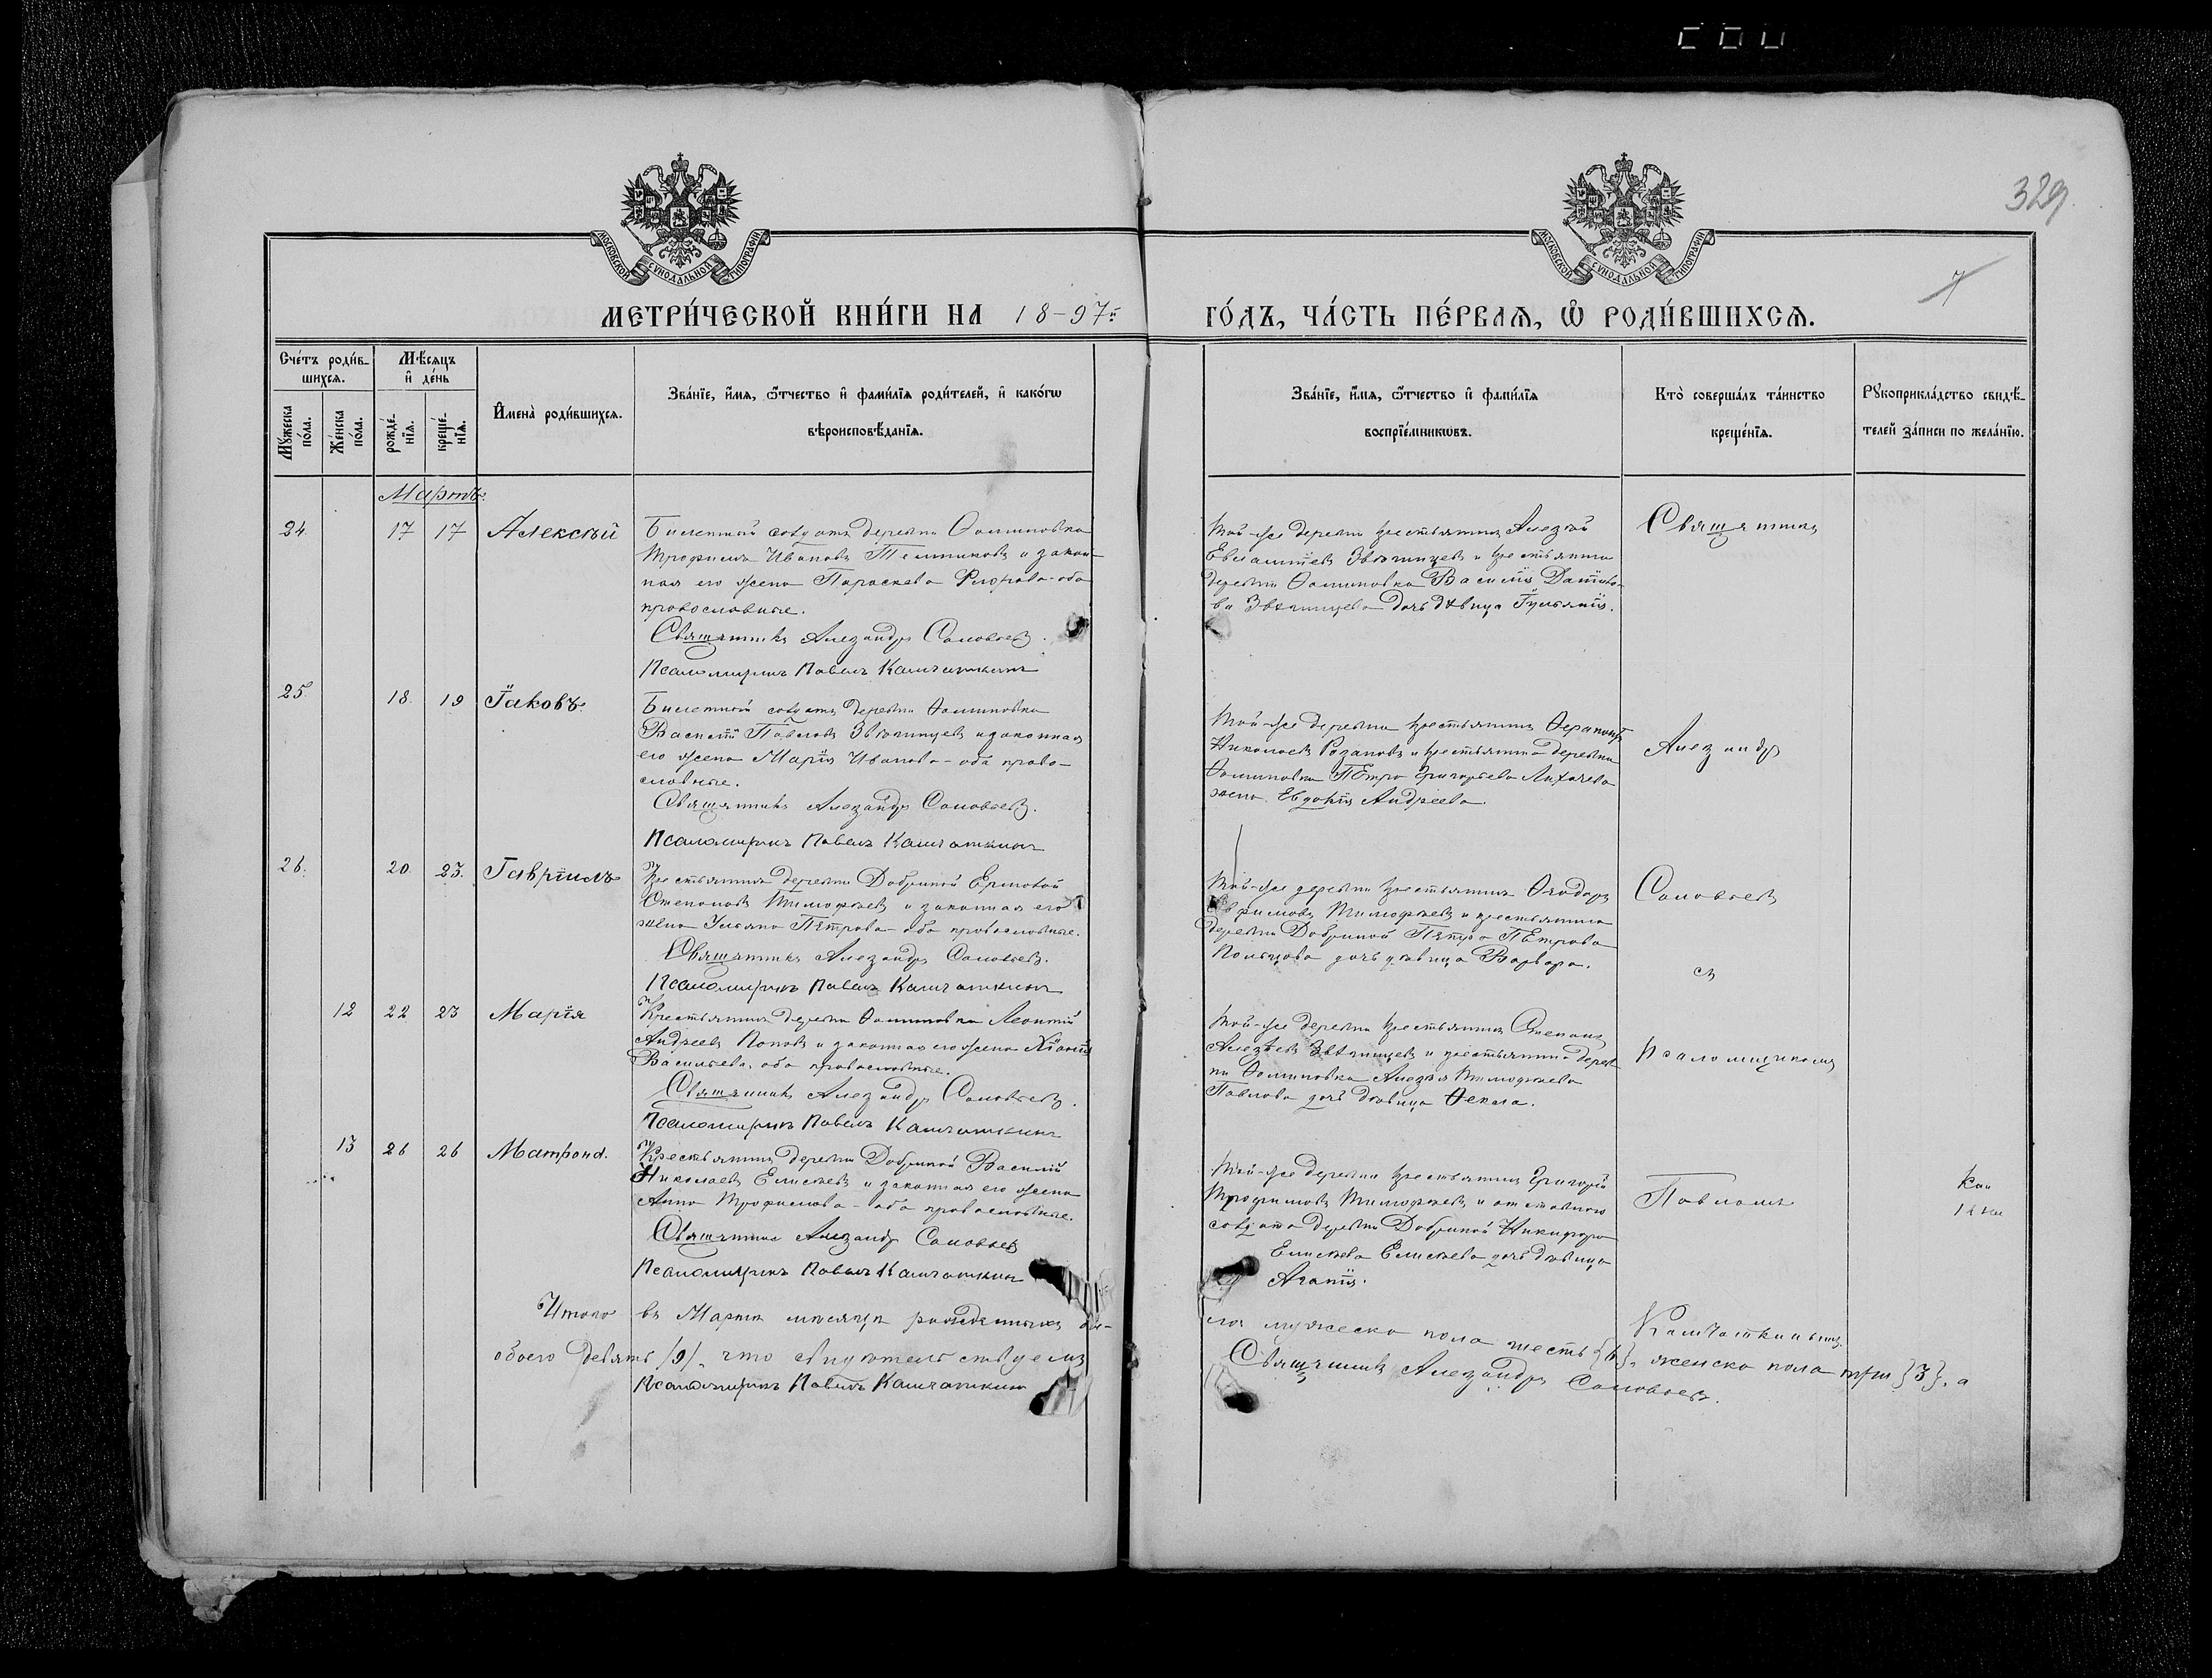 329
7
МОСКОВСКОЙ СѴНОДАЛЬНОЙ ТИПОГРАФІИ
МОСКОВСКОЙ СѴНОДАЛЬНОЙ ТИПОГРАФІИ
МЕТРИ́ЧЕСКОЙ КНИ́ГИ НА 18-97й
ГО́ДЪ, ЧА́СТЬ ПЕ́РВАѦ, Ѽ РОДИ́ВШИХСѦ.
Сче́тъ роди́в-
шихсѧ.
Мꙋ́жеска по́ла.
Же́нска по́ла.
Мѣ́сѧцъ
и҆ де́нь
рожде́-нїѧ.
креще́-нїѧ.
И҆мена̀ роди́вшихсѧ.
Зва́нїе, и҆́мѧ, ѻ҆́тчество и҆ фами́лїѧ роди́телей, и҆ како́гѡ
вѣроисповѣ́данїѧ.
Зва́нїе, и҆́мѧ, ѻ҆́тчество и҆ фами́лїѧ
воспрїе́мникѡвъ.
Кто̀ соверша́лъ та́инство
креще́нїѧ.
Рꙋкоприкла́дство свидѣ́-
телей за́писи по жела́нїю.
Мартъ.
24 17 17 Алексѣй
Билетный солдатъ деревни Ѳоминовки
Трофимъ Ивановъ и закон-
ная его жена Параскева оба
православные.
Священникъ Александръ Соловьевъ.
Псаломщикъ Павелъ Камчаткинъ
Той-же деревни крестьянинъ Алексѣй
Звягинцевъ и крестьянина
деревни Ѳоминовки Василія Данило-
ва Звягинцева дочь дѣвица
Священникъ
25 18 19 Іаковъ
Билетный солдатъ деревни Ѳоминовки
Василій Павловъ Звягинцевъ и законная
его жена Марія Иванова - оба право-
славные.
Священникъ Александръ Соловьевъ.
Псаломщикъ Павелъ Камчаткинъ
Той-же деревни крестьянинъ Ѳерапонтъ
Николаевъ Розановъ и крестьянина деревни
Ѳоминовки Петра Григорьева Лихачева
жена Евдокія Андреева.
Александръ
26. 20 23. Гавріилъ
Крестьянинъ деревни Добриной
Степановъ Тимофѣевъ и законная его
жена Ульяна Петрова - оба православные.
Священникъ Александръ Соловьевъ.
Псаломщикъ Павелъ Камчаткинъ
Той-же деревни крестьянинъ Ѳеодоръ
Тимофѣевъ и крестьянина
деревни Добриной Петра Петрова
дочь дѣвица Варвара.
Соловьевъ
съ
12 22 23 Марія
Крестьянинъ деревни Ѳоминовки Леонтій
Андреевъ Поповъ и законная его жена
Васильева, оба православные.
Священникъ Александръ Соловьевъ.
Псаломщикъ Павелъ Камчаткинъ
Той-же деревни крестьянинъ Степанъ
Звягинцевъ и крестьянина дерев-
ни Ѳоминовки Алексѣя Тимофѣева
Павлова дочь дѣвица Ѳекла.
Псаломщикомъ
13 26 26 Матрона.
Крестьянинъ деревни Добриной Василій
Николаевъ Елисѣевъ и законная его жена
Анна Трофимова - оба православные.
Священникъ Александръ Соловьевъ
Псаломщикъ Павелъ Камчаткинъ
Той-же деревни крестьянинъ Григорій
Трофимовъ Тимофѣевъ и отставного
солдата деревни Добриной Никифора
Елисѣева Елисѣева дочь дѣвица
Агапія.
Павломъ
Камчаткинымъ.
Итого въ Мартѣ мѣсяцѣ рожденныхъ
мужеска пола шесть {6}, женска пола три {3}, а
обоего девять /9/, что свидѣтельствуемъ
Священникъ Александръ Соловьевъ.
Псаломщикъ Павелъ Камчаткинъ